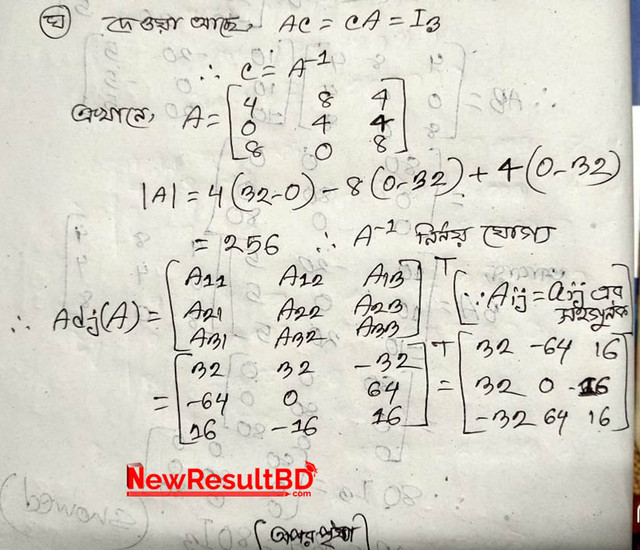 (ঘ) দেওয়া আছে, AC = CA = I3
∴ C = A^-1
এখানে, A = [4 8 4
0 4 4
8 0 8]
|A| = 4(32-0) - 8(0-32) + 4(0-32)
= 256 ∴ A^-1 নির্ণয় যোগ্য
∴ Adj(A) = [A11 A12 A13
A21 A22 A23
A31 A32 A33]^T [∵ Aij = aij এর সহগুনক]
= [32 32 -32
-64 0 64
16 -16 16]^T = [32 -64 16
32 0 -16
-32 64 16]
NewResultBD
.com
[অপর পৃষ্ঠা]